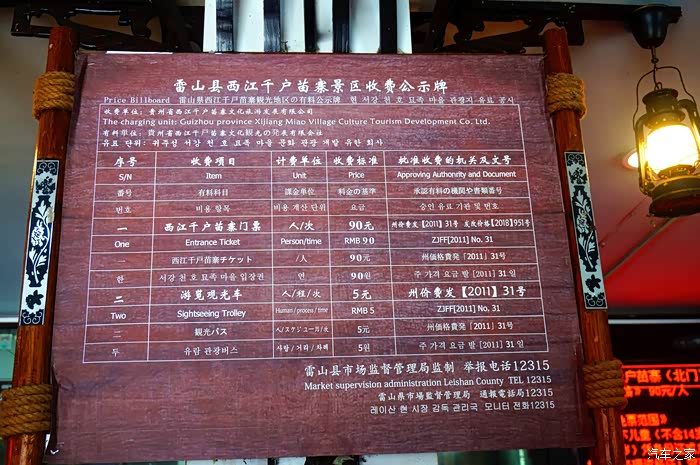 雷山县西江千户苗寨景区收费公示牌
Price Billboard 雷山県西江千戸苗寨観光地区の有料公示牌 현 서강 천 호 묘족 마을 관광지 유료 공시
收费单位:贵州省西江千户苗寨文化旅游发展有限公司
The charging unit: Guizhou province Xijiang Miao Village Culture Tourism Development Co. Ltd.
有料単位:貴州省西江千戸苗寨文化観光の発展有限会社
유료 단위: 귀주성 서강 천 호 묘족 마을 문화 관광 개발 유한 회사
序号 收费项目 计费单位 收费标准 批准收费的机关及文号
S/N Item Unit Price Approving Authority and Document
番号 有料科目 課金単位 料金の基準 承認有料の機関や書類番号
번호 비용 항목 비용 계산 단위 요금 승인 유료 기관 및 번호
一 西江千户苗寨门票 人/次 90元 州价费发【2011】31号 发改价格【2018】951号
One Entrance Ticket Person/time RMB 90 ZJFF[2011] No. 31
一 西江千戸苗寨チケット /人 90元 州価格費発「2011」31号
한 서강 천 호 묘족 마을 입장권 연 90원 주 가격 요금 발 [2011] 31일
二 游览观光车 人/程/次 5元 州价费发【2011】31号
Two Sightseeing Trolley Human/process/time RMB 5 ZJFF[2011] No. 31
二 観光バス 人/スケジュール/次 5元 州価格費発「2011」31号
두 유람 관광버스 사람/거리/차례 5원 주 가격 요금 발 [2011] 31일
雷山县市场监督管理局监制 举报电话12315
Market supervision administration Leishan County TEL 12315
雷山県市場監督管理局 通報電話局12315
레이산 현 시장 감독 관리국 모니터 전화12315
户苗寨(北门
90元/人
汽车之家